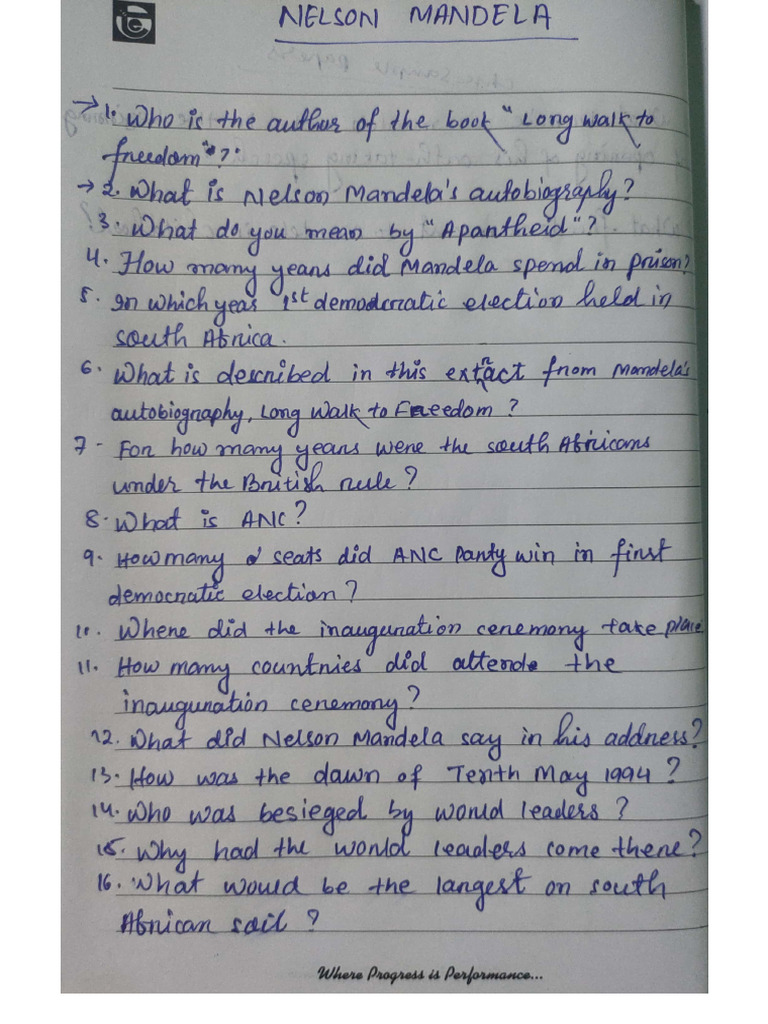 NELSON MANDELA
→ 1. Who is the author of the book "Long Walk to
freedom"?
→ 2. What is Nelson Mandela's autobiography?
3. What do you mean by "Apantheid"?
4. How many years did Mandela spend in prison?
5. In which year 1st demodcratic election held in
south Africa.
6. What is described in this extract from Mandela's
autobiography, Long Walk to Freedom?
7- For how many years were the south Africans
under the British rule?
8. What is ANC?
9. How many seats did ANC Party win in first
democratic election?
10. Where did the inauguration ceremony take place
11. How many countries did attende the
inauguration ceremony?
12. What did Nelson Mandela say in his address?
13. How was the dawn of Tenth May 1994?
14. Who was besieged by world leaders?
15. Why had the world leaders come there?
16. What would be the largest on south
African soil?
Where Progress is Performance...